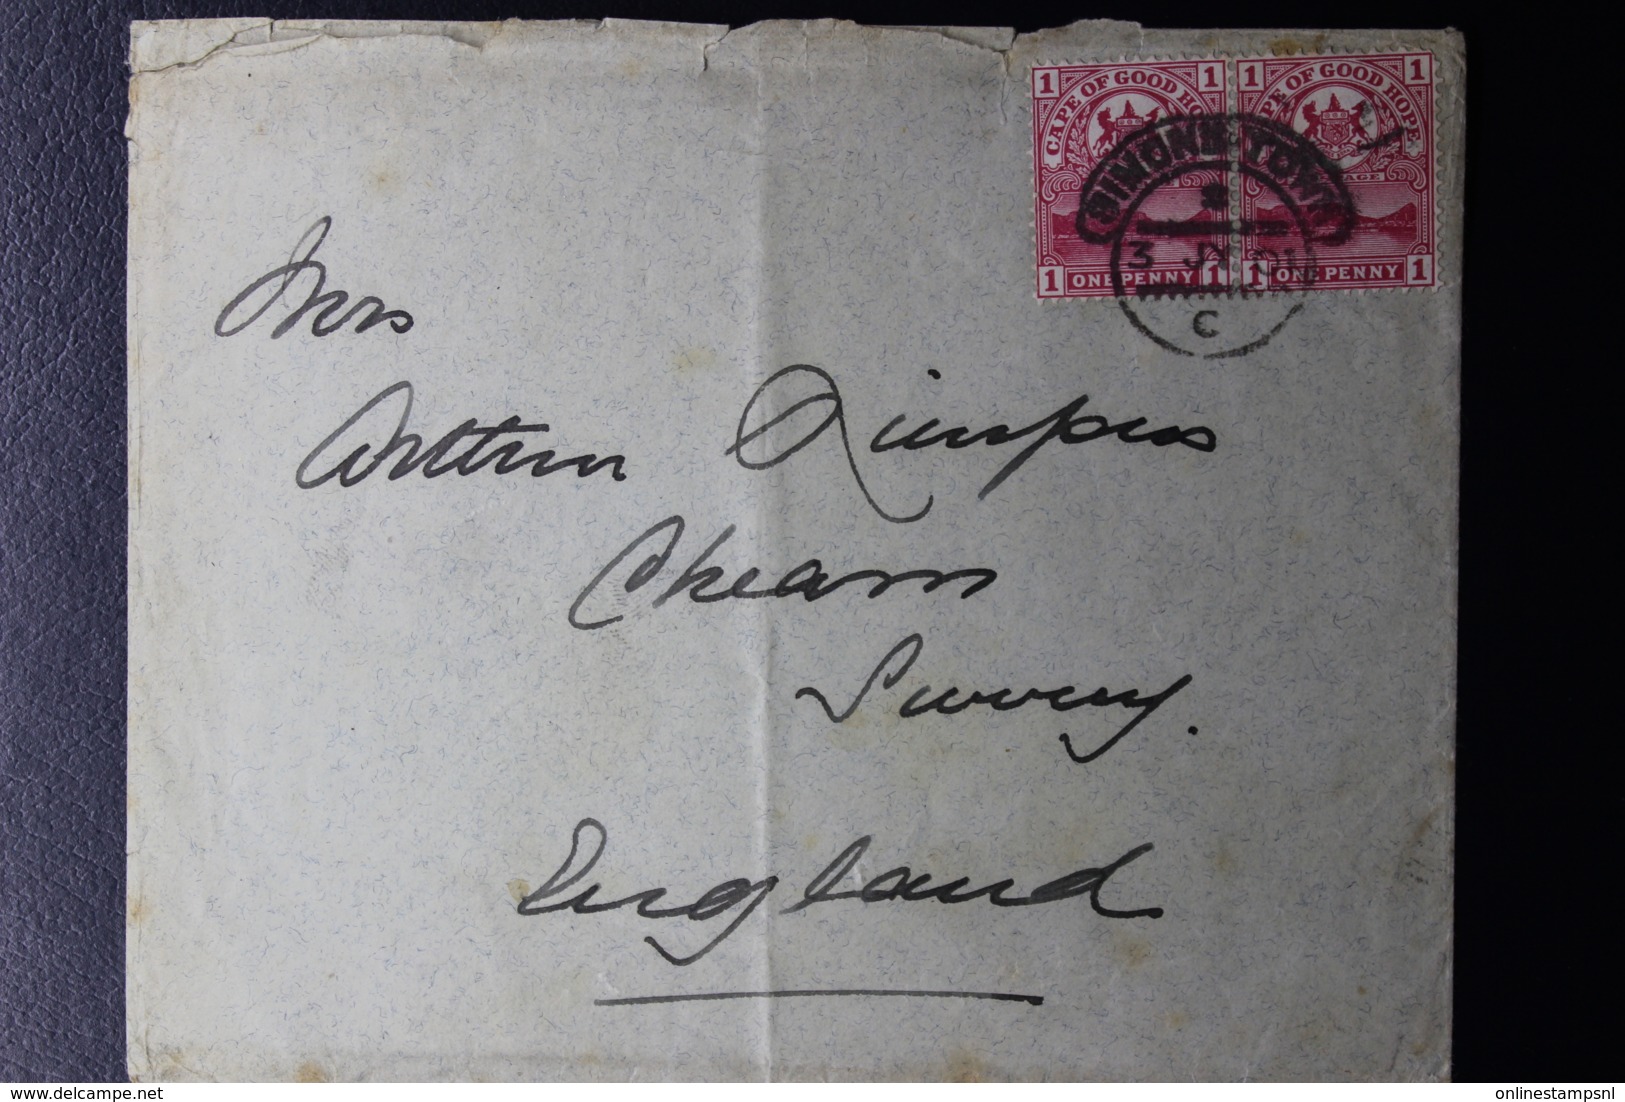 1 CAPE OF GOOD HOPE 1
1 ONE PENNY 1
1 CAPE OF GOOD HOPE 1
1 ONE PENNY 1
SIMONS TOWN
3 JY 01
C
Mrs
Arthur
Cheam
Surrey.
England
www.delcampe.net
onlinestampsnl